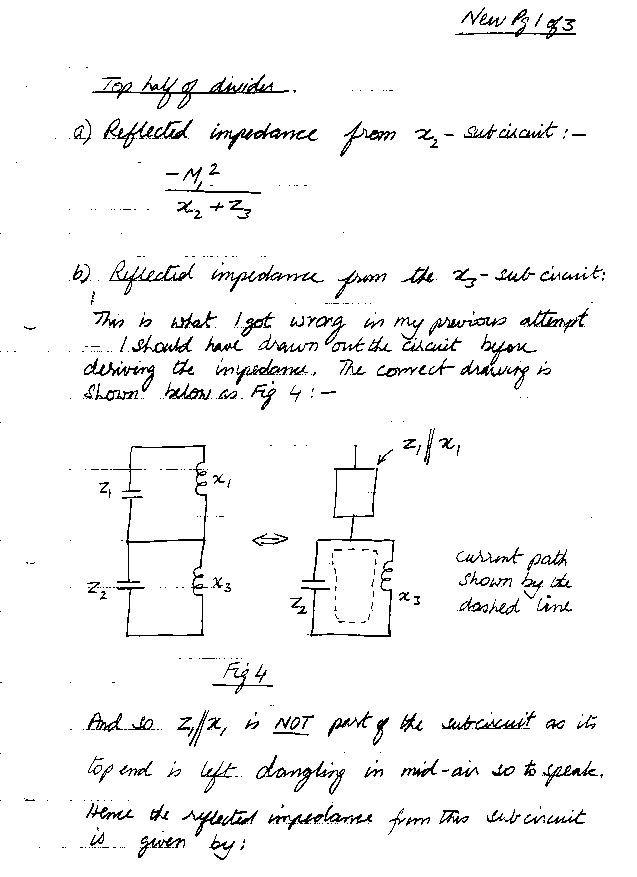 New Pg 1 of 3
Top half of divider.
a) Reflected impedance from x₂ - subcircuit :-
-M₁²
x₂ + Z₃
b) Reflected impedance from the x₃ - subcircuit:
This is what I got wrong in my previous attempt
- I should have drawn out the circuit before
deriving the impedance. The correct drawing is
shown below as Fig 4 :-
Z₁ // x₁
Z₁
x₁
Z₂
x₃
Z₂
x₃
current path
shown by the
dashed line
Fig 4
And so Z₁//x₁ is NOT part of the subcircuit as its
top end is left dangling in mid-air so to speak.
Hence the reflected impedance from this subcircuit
is given by: